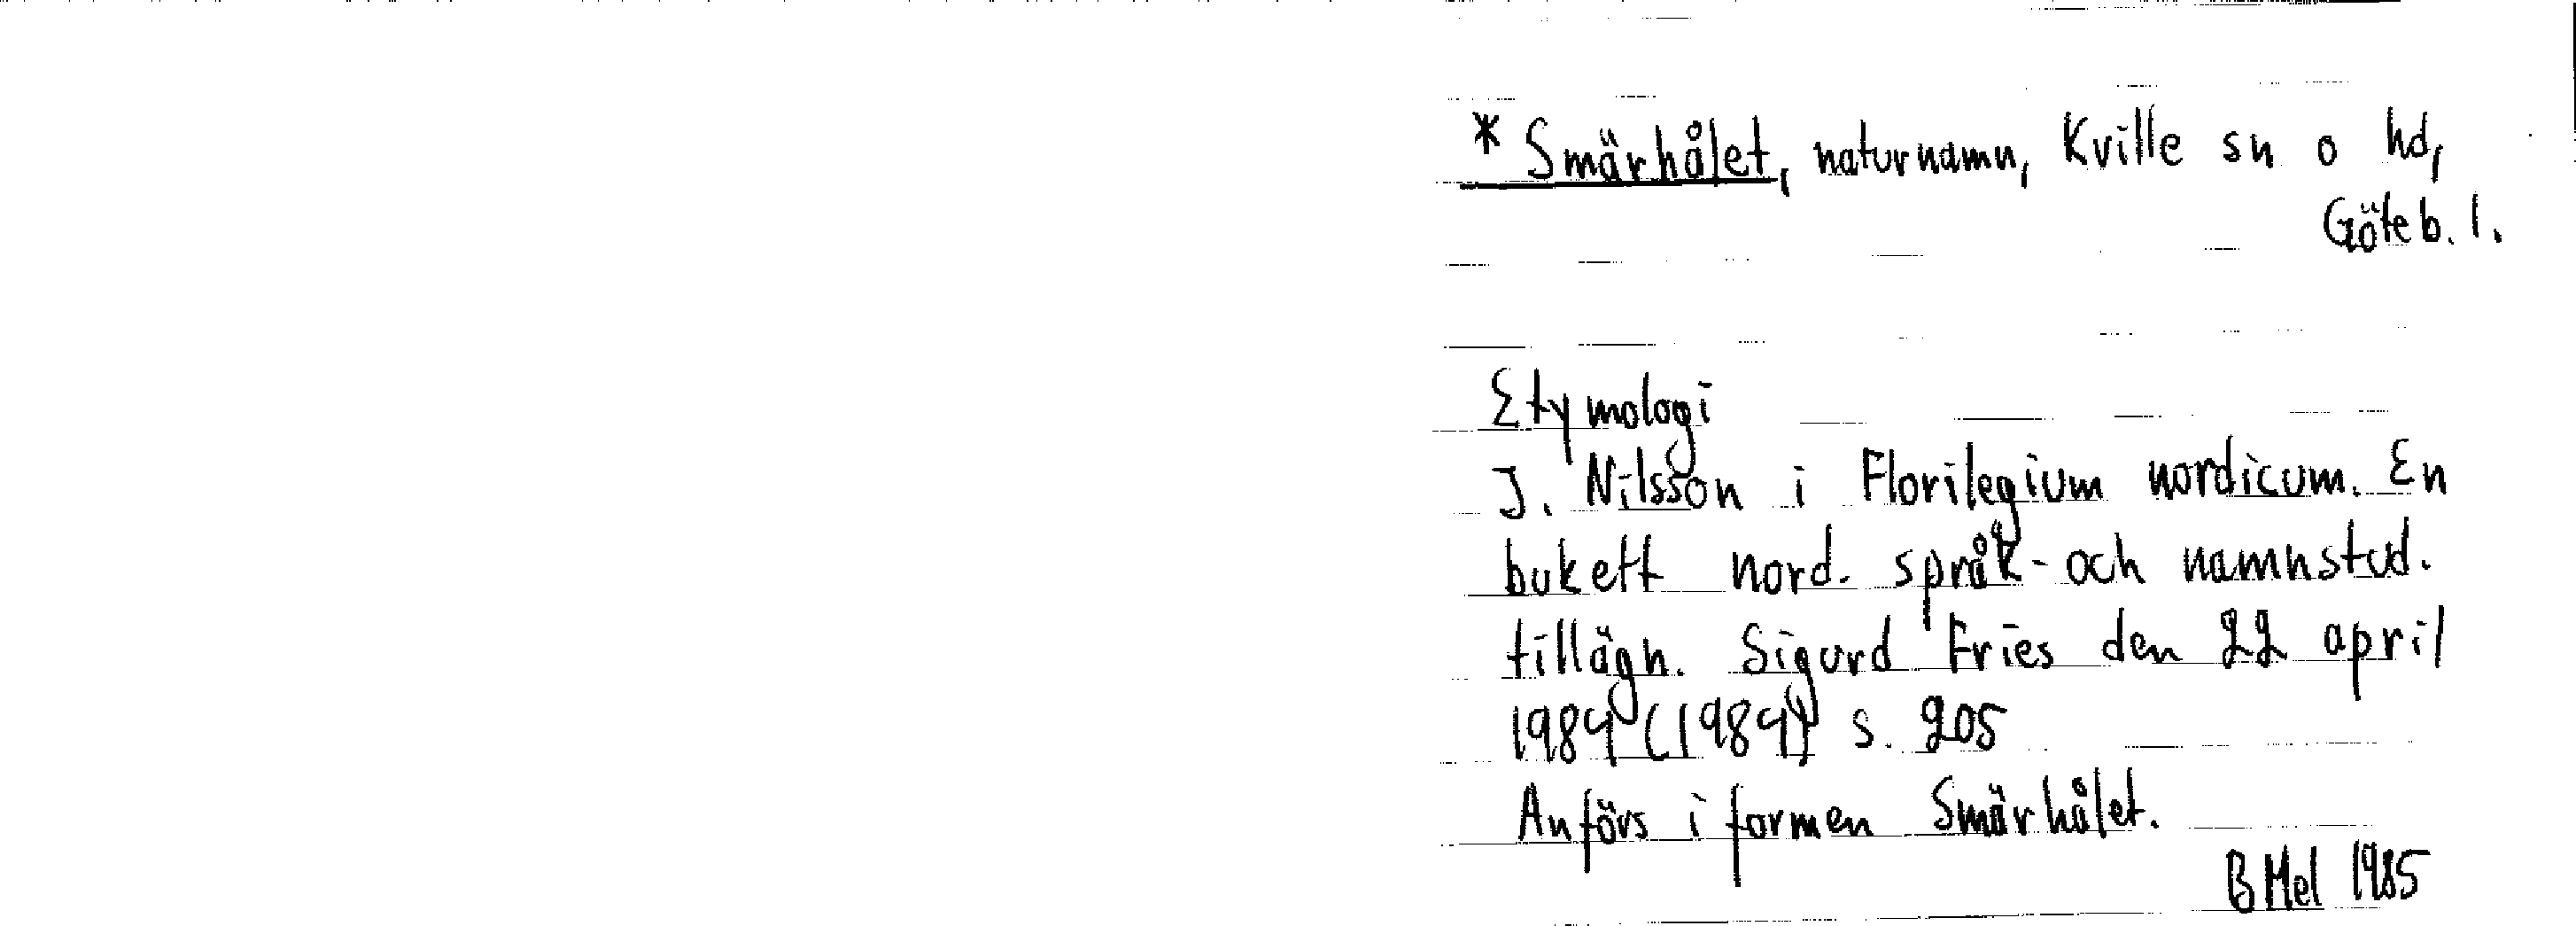 * Smärhålet, naturnamn, Kville sn o hd,
Göteb. l.
Etymologi
J. Nilsson i Florilegium nordicum. En
bukett nord. språk- och namnstud.
tillägn. Sigurd Fries den 22 april
1984 (1984) s. 205
Anförs i formen Smärhålet.
B Mel 1985